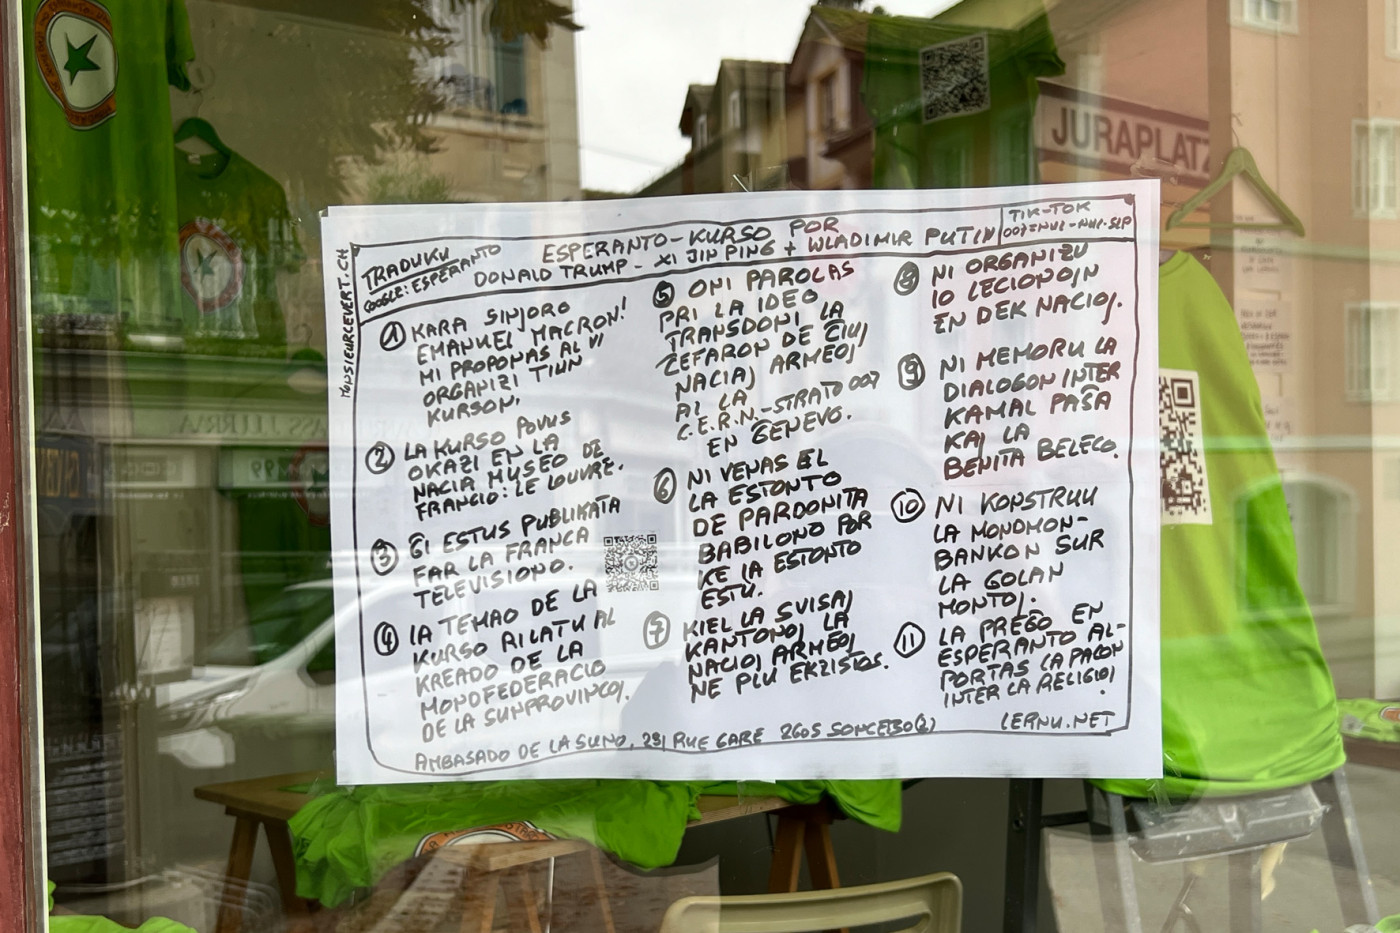 JURAPLATZ
MONSIEURCEVERT.CH
TRADUKU
GOOGLE: ESPERANTO
ESPERANTO-KURSO POR
DONALD TRUMP - XI JIN PING + WLADIMIR PUTIN
TIK-TOK
① KARA SINJORO
EMANUEL MACRON!
MI PROPONAS AL VI
ORGANIZI TIUN
KURSON.
② LA KURSO POVUS
OKAZI EN LA
NACIA MUSEO DE
FRANCIO: LE LOUVRE.
③ ĜI ESTUS PUBLIKATA
FAR LA FRANCA
TELEVISIONO.
④ LA TEMAO DE LA
KURSO RILATU AL
KREADO DE LA
MONOFEDERACIO
DE LA SUNPROVINCOJ.
⑤ ONI PAROLAS
PRI LA IDEO
TRANSDONI LA
ĈEFARON DE ĈIUJ
NACIAJ ARMEOJ
AL LA
C.E.R.N.-STRATO 007
EN GENEVO.
⑥ NI VENAS EL
LA ESTONTO
DE PARDONITA
BABILONO POR
KE LA ESTONTO
ESTU.
⑦ KIEL LA SVISAJ
KANTONOJ LA
NACIOJ ARMEOJ
NE PLU EKZISTOS.
⑧ NI ORGANIZU
10 LECIONOJN
EN DEK NACIOJ.
⑨ NI MEMORU LA
DIALOGON INTER
KAMAL PAŜA
KAJ LA
BENITA BELECO.
⑩ NI KONSTRUU
LA MONDMON-
BANKON SUR
LA GOLAN
MONTOJ.
⑪ LA PREĜO EN
ESPERANTO AL-
PORTAS LA PACON
INTER LA RELIGIOJ.
AMBASADO DE LA SUNO, 231 RUE GARE 2605 SONCEBOZ(2)
LERNU.NET